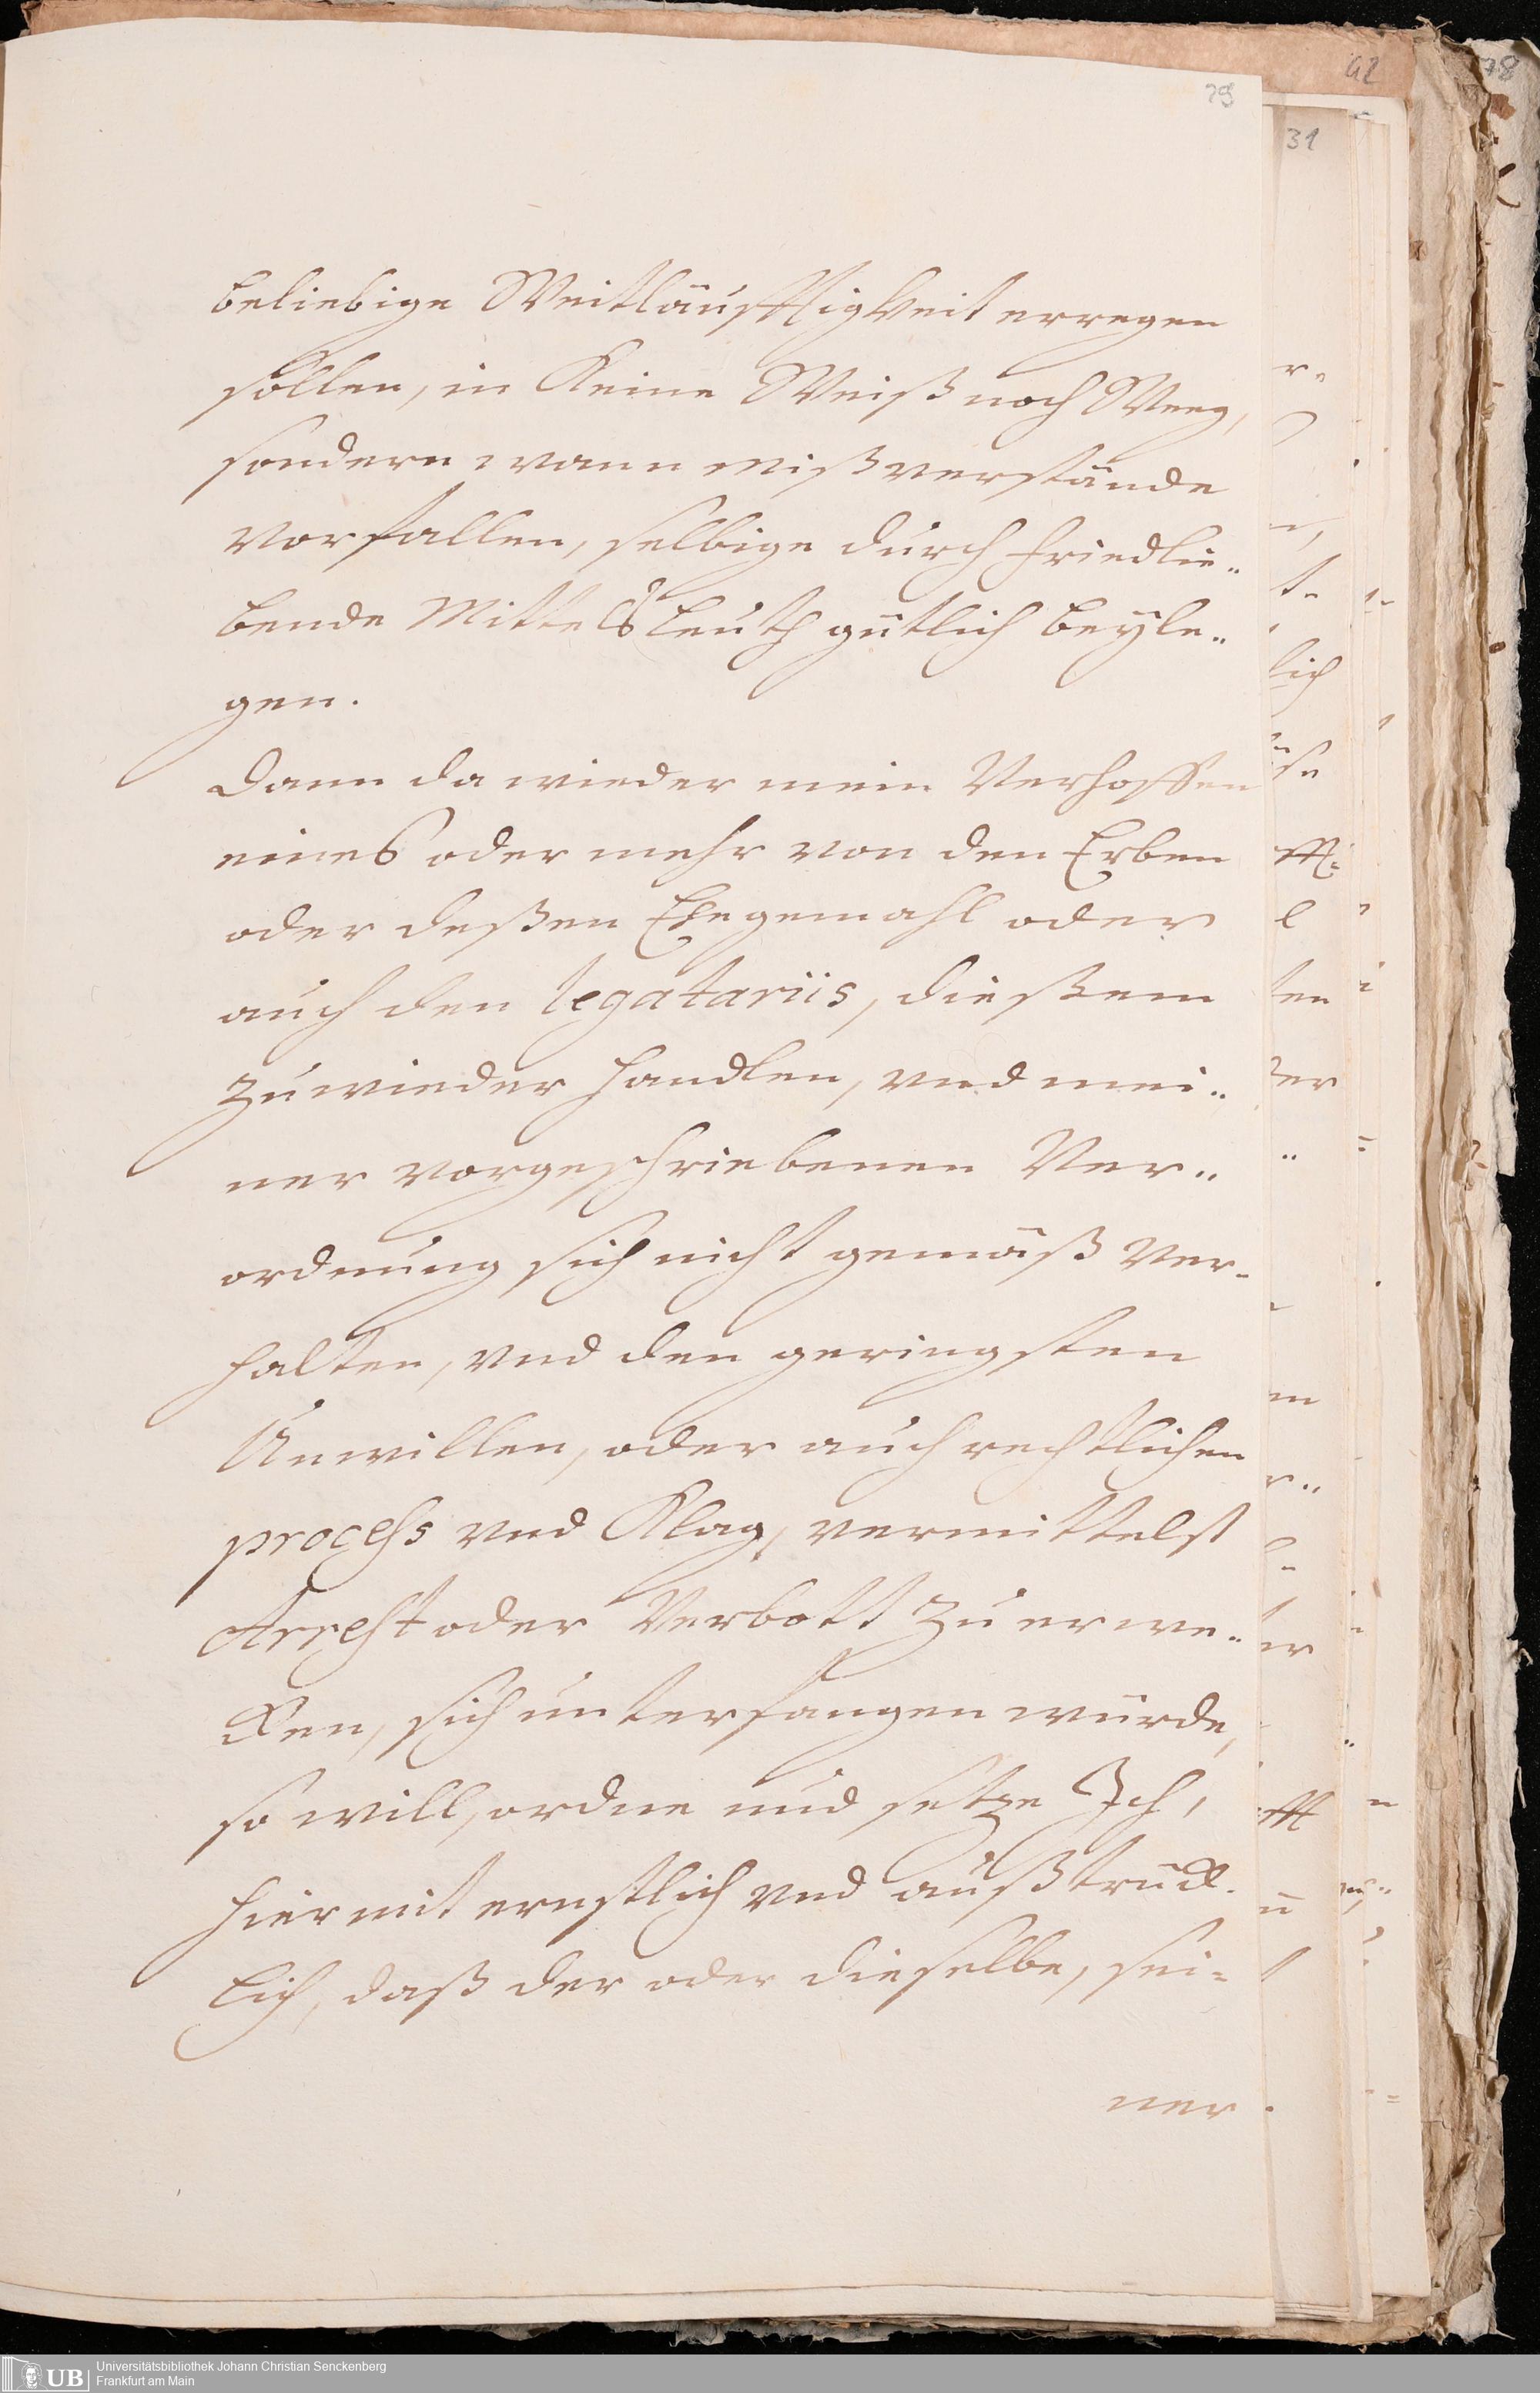 29
42
78
31
beliebige Weitläufftigkeit erregen
sollen, in Keine Weiß noch Weeg,
sondern wann mißverstände
vorfallen, selbige durch friedlie„
bende Mittelsleuth gütlich beyle„
gen.
Dann da wieder mein Verhoffen
eines oder mehr von den Erben
oder deßen Ehegemahl oder
auch den legatariis, dießem
zuwieder handlen, vnd mei„
ner vorgeschriebenen Ver„
ordnung sich nicht gemäß ver-
halten, vnd den geringsten
Unwillen, oder auch rechtlichen
process vnd Klag, vermittelst
Arrest oder Verbott zu erwe„
cken, sich unterfangen würde,
so will, ordne und setze Ich,
hiermit ernstlich vnd außtrück-
lich, daß der oder dieselbe, sei=
ner
UB
Universitätsbibliothek Johann Christian Senckenberg
Frankfurt am Main